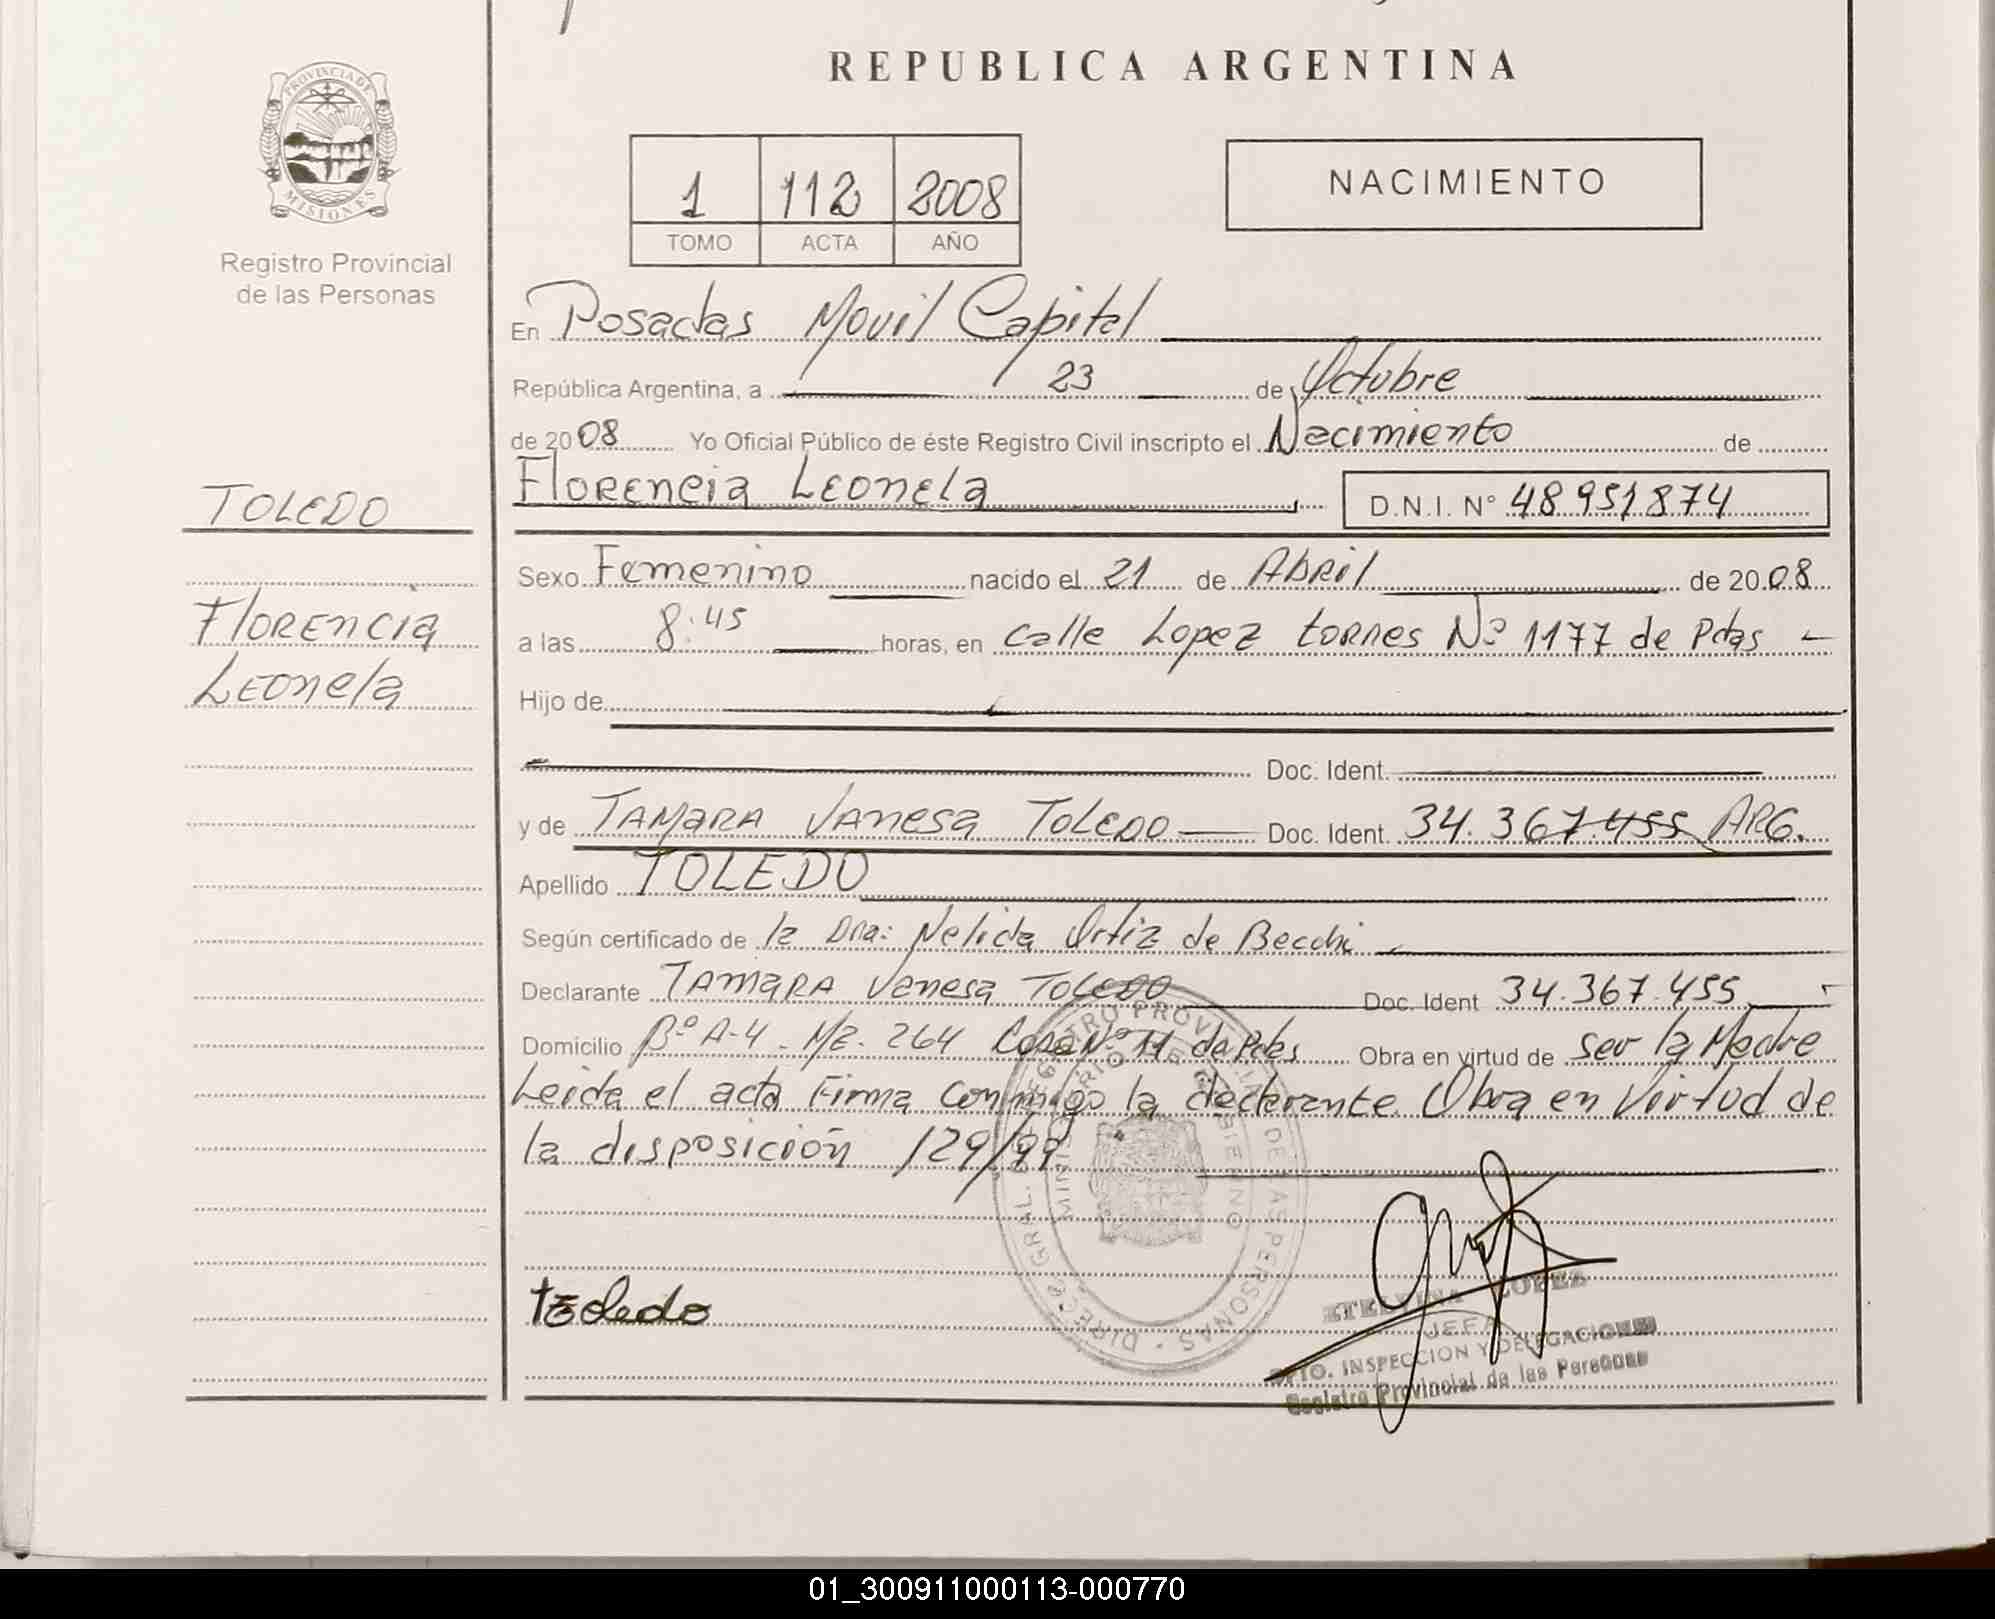 REPUBLICA ARGENTINA
PROVINCIA DE
MISIONES
Registro Provincial
de las Personas
1 112 2008
TOMO ACTA AÑO
NACIMIENTO
En Posadas Movil Capital
República Argentina, a 23 de Octubre
de 2008 Yo Oficial Público de éste Registro Civil inscripto el Nacimiento de
Florencia Leonela D.N.I. N° 48951874
TOLEDO
Florencia
Leonela
Sexo Femenino nacido el 21 de Abril de 2008
a las 8:45 horas, en calle Lopez torres Nº 1177 de Pdas
Hijo de
Doc. Ident.
y de Tamara Vanesa Toledo Doc. Ident. 34.367.455 ARG.
Apellido TOLEDO
Según certificado de la Dra: Nelida Ortiz de Becchi
Declarante Tamara Vanesa Toledo Doc. Ident 34.367.455
Domicilio Bº A-4 - Mz. 264 Casa Nº 11 de Pdas Obra en virtud de ser la Madre
Leida el acta Firma conmigo la declarante. Obra en Virtud de
la disposición 129/99
DIRECC. GRAL. DE REGISTRO PROVINCIAL DE LAS PERSONAS
MINISTERIO DE GOBIERNO
toledo
ETELVINA LOPEZ
JEFA
DPTO. INSPECCION Y DELEGACIONES
Registro Provincial de las Personas
01_300911000113-000770